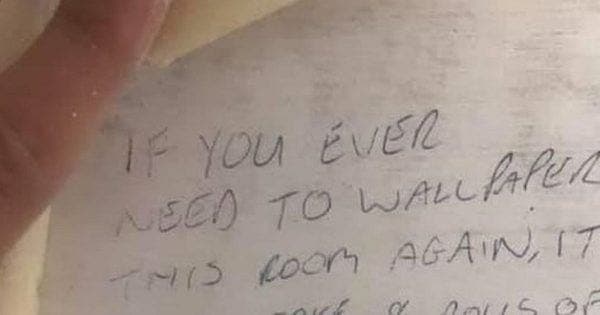 IF YOU EVER
NEED TO WALLPAPER
THIS ROOM AGAIN, IT
8 ROLLS OF